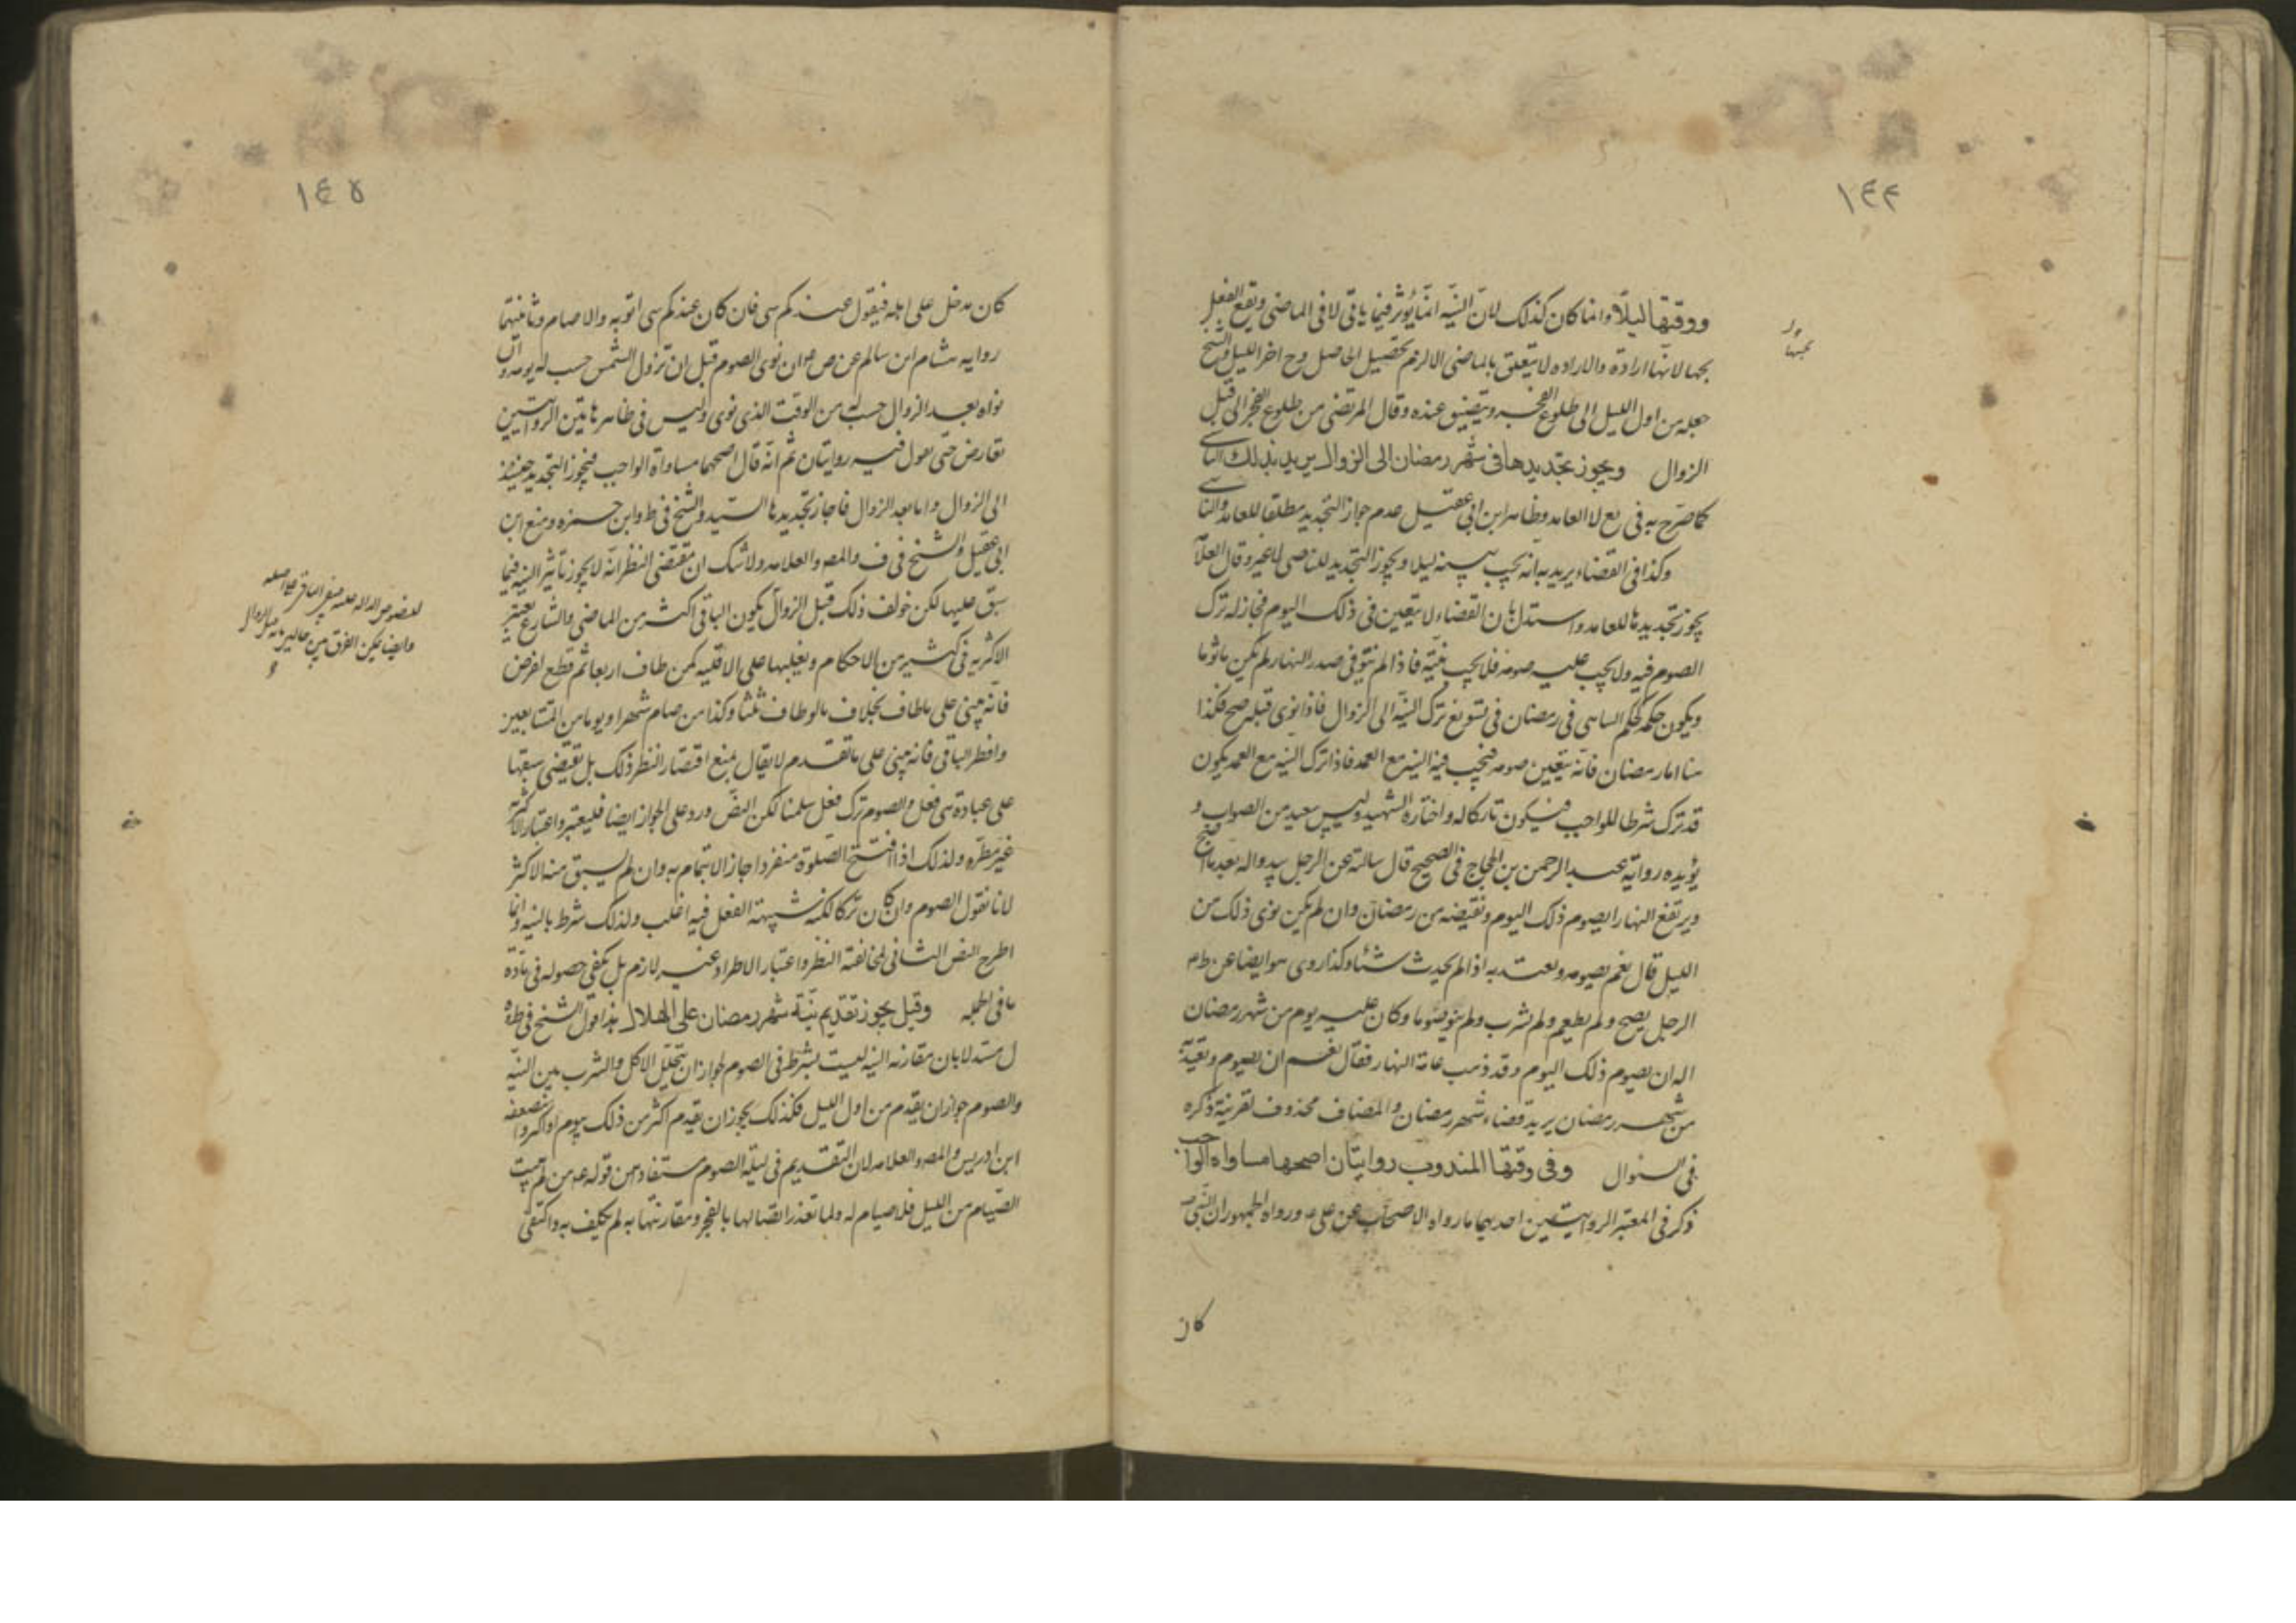 ١٤٤
ووقتها ليلا وانما كان كذلك لان النية انما يؤثر فيما ياتى لا فى الماضى ويقع الفعل
بجهتها
بها لانها ارادة والاراده لا يتعلق بالماضى الا لزم تحصيل الحاصل وح اخر الليل والشيخ
جعله من اول الليل الى طلوع الفجر ويتضيق عنده وقال المرتضى من طلوع الفجر الى قبل
الزوال ويجوز تجديدها فى شهر رمضان الى الزوال يريد بذلك الناسى
كما صرح به فى يع لا العامد وظاهر ابن ابى عقيل عدم جواز التجديد مطلقا للعامد والناسى
وكذا فى القضاء يريد به انه يجب ليلا ويجوز التجديد للناسى لا غير وقال العلا
يجوز تجديدها للعامد واستدل بان القضاء لا يتعين فى ذلك اليوم فجاز له ترك
الصوم فيه ولا يجب عليه صومه فلا يجب نيته فاذا لم ينو فى صدر النهار لم يكن ماثوما
ويكون حكمه كحكم الساهى فى رمضان فى تسويغ ترك النية الى الزوال فاذا نوى قبله صح فكذا
هنا اما رمضان فانه يتعين صومه فيجب فيه النية مع العمد فاذا ترك النية مع العمد يكون
قد ترك شرطا للواجب فيكون تاركا له واختاره الشهيد وليس ببعيد من الصواب و
يؤيده رواية عبد الرحمن بن الحجاج فى الصحيح قال سالته عن الرجل يبدو له بعد ما اصبح
ويرتفع النهار ايصوم ذلك اليوم ونقيضه من رمضان وان لم يكن نوى ذلك من
الليل قال نعم يصومه ويعتد به اذا لم يحدث شئا وكذا روى هو ايضا عن
الرجل يصبح ولم يطعم ولم يشرب ولم ينو صوما وكان عليه يوم من شهر رمضان
اله ان يصوم ذلك اليوم وقد ذهب عامة النهار فقال نعم ان يصوم ويعتد به
من شهر رمضان يريد قضاء شهر رمضان والمضاف محذوف لقرينة ذكره
فى السئوال وفى وقتها المندوب روايتان اصحهما مساواه الواجب
ذكر فى المعتبر الروايتين احديهما ما رواه الاصحاب عن على ورواه الجمهور ان النبى ص
كان
١٤٥
كان يدخل على اهله فيقول عندكم شى فان كان عندكم شى اتوبه والا صام وثانيتهما
روايه هشام ابن سالم عن ص ان نوى الصوم قبل ان تزول الشمس حسب له يومه وان
نواه بعد الزوال حسب له من الوقت الذى نوى وليس فى ظاهر هاتين الروايتين
تعارض حتى يقول فيه روايتان ثم انه قال اصحهما مساواة الواجب فيجوز التجديد حينئذ
الى الزوال واما بعد الزوال فاجاز تجديدها السيد والشيخ فى ط وابن حمزه ومنع ابن
ابى عقيل والشيخ فى ف والمصو العلامه ولا شك ان مقتضى النظر انه لا يجوز تاثير النيه فيما
سبق عليها لكن خولف ذلك قبل الزوال يكون الباقى اكثر من الماضى والشارع يعتبر
الاكثريه فى كثير من الاحكام ويغلبها على الاقليه كمن طاف اربعا ثم قطع لغرض
فانه يبنى على ما طاف بخلاف ما لو طاف ثلثا وكذا من صام شهرا ويوما من المتتابعين
وافطر الباقى فانه يبنى على ما تقدم لا يقال بمنع اقتضاء النظر ذلك بل تقيضى سبقها
على عبادة هى فعل والصوم ترك فعل سلمنا لكن النص ورد على الجواز ايضا فليعتبر واعتبار الاكثرية
غير مطرده ولذلك اذا افتتح الصلوة منفردا جاز الائتمام به وان لم يسبق منه الاكثر
لانا نقول الصوم وان كان تركا لكنه شبيهة الفعل فيه اغلب ولذلك شرط بالنيه وانما
اطرح النص الثانى لمخالفته النظر واعتبار الاطراد غير لازم بل يكفى حصوله فى مادة
ما فى الجمله وقيل يجوز تقديم نية شهر رمضان على الهلال هذا قول الشيخ فى ط
مستدلا بان مقارنه النيه ليست بشرط فى الصوم لجواز ان يتخلل الاكل والشرب بين النية
والصوم جواز ان يقدم من اول الليل فكذلك يجوز ان يقدم اكثر من ذلك بيوم او اكثر واضعفه
ابن ادريس والمصو العلامه لان التقديم فى ليلة الصوم مستفاد من قوله ع من لم يبيت
الصيام من الليل فلا صيام له ولما تعذر ايقاعها بالفجر ومقارنتها به لم يكلف به واكتفى
وايضا يمكن الفرق بين